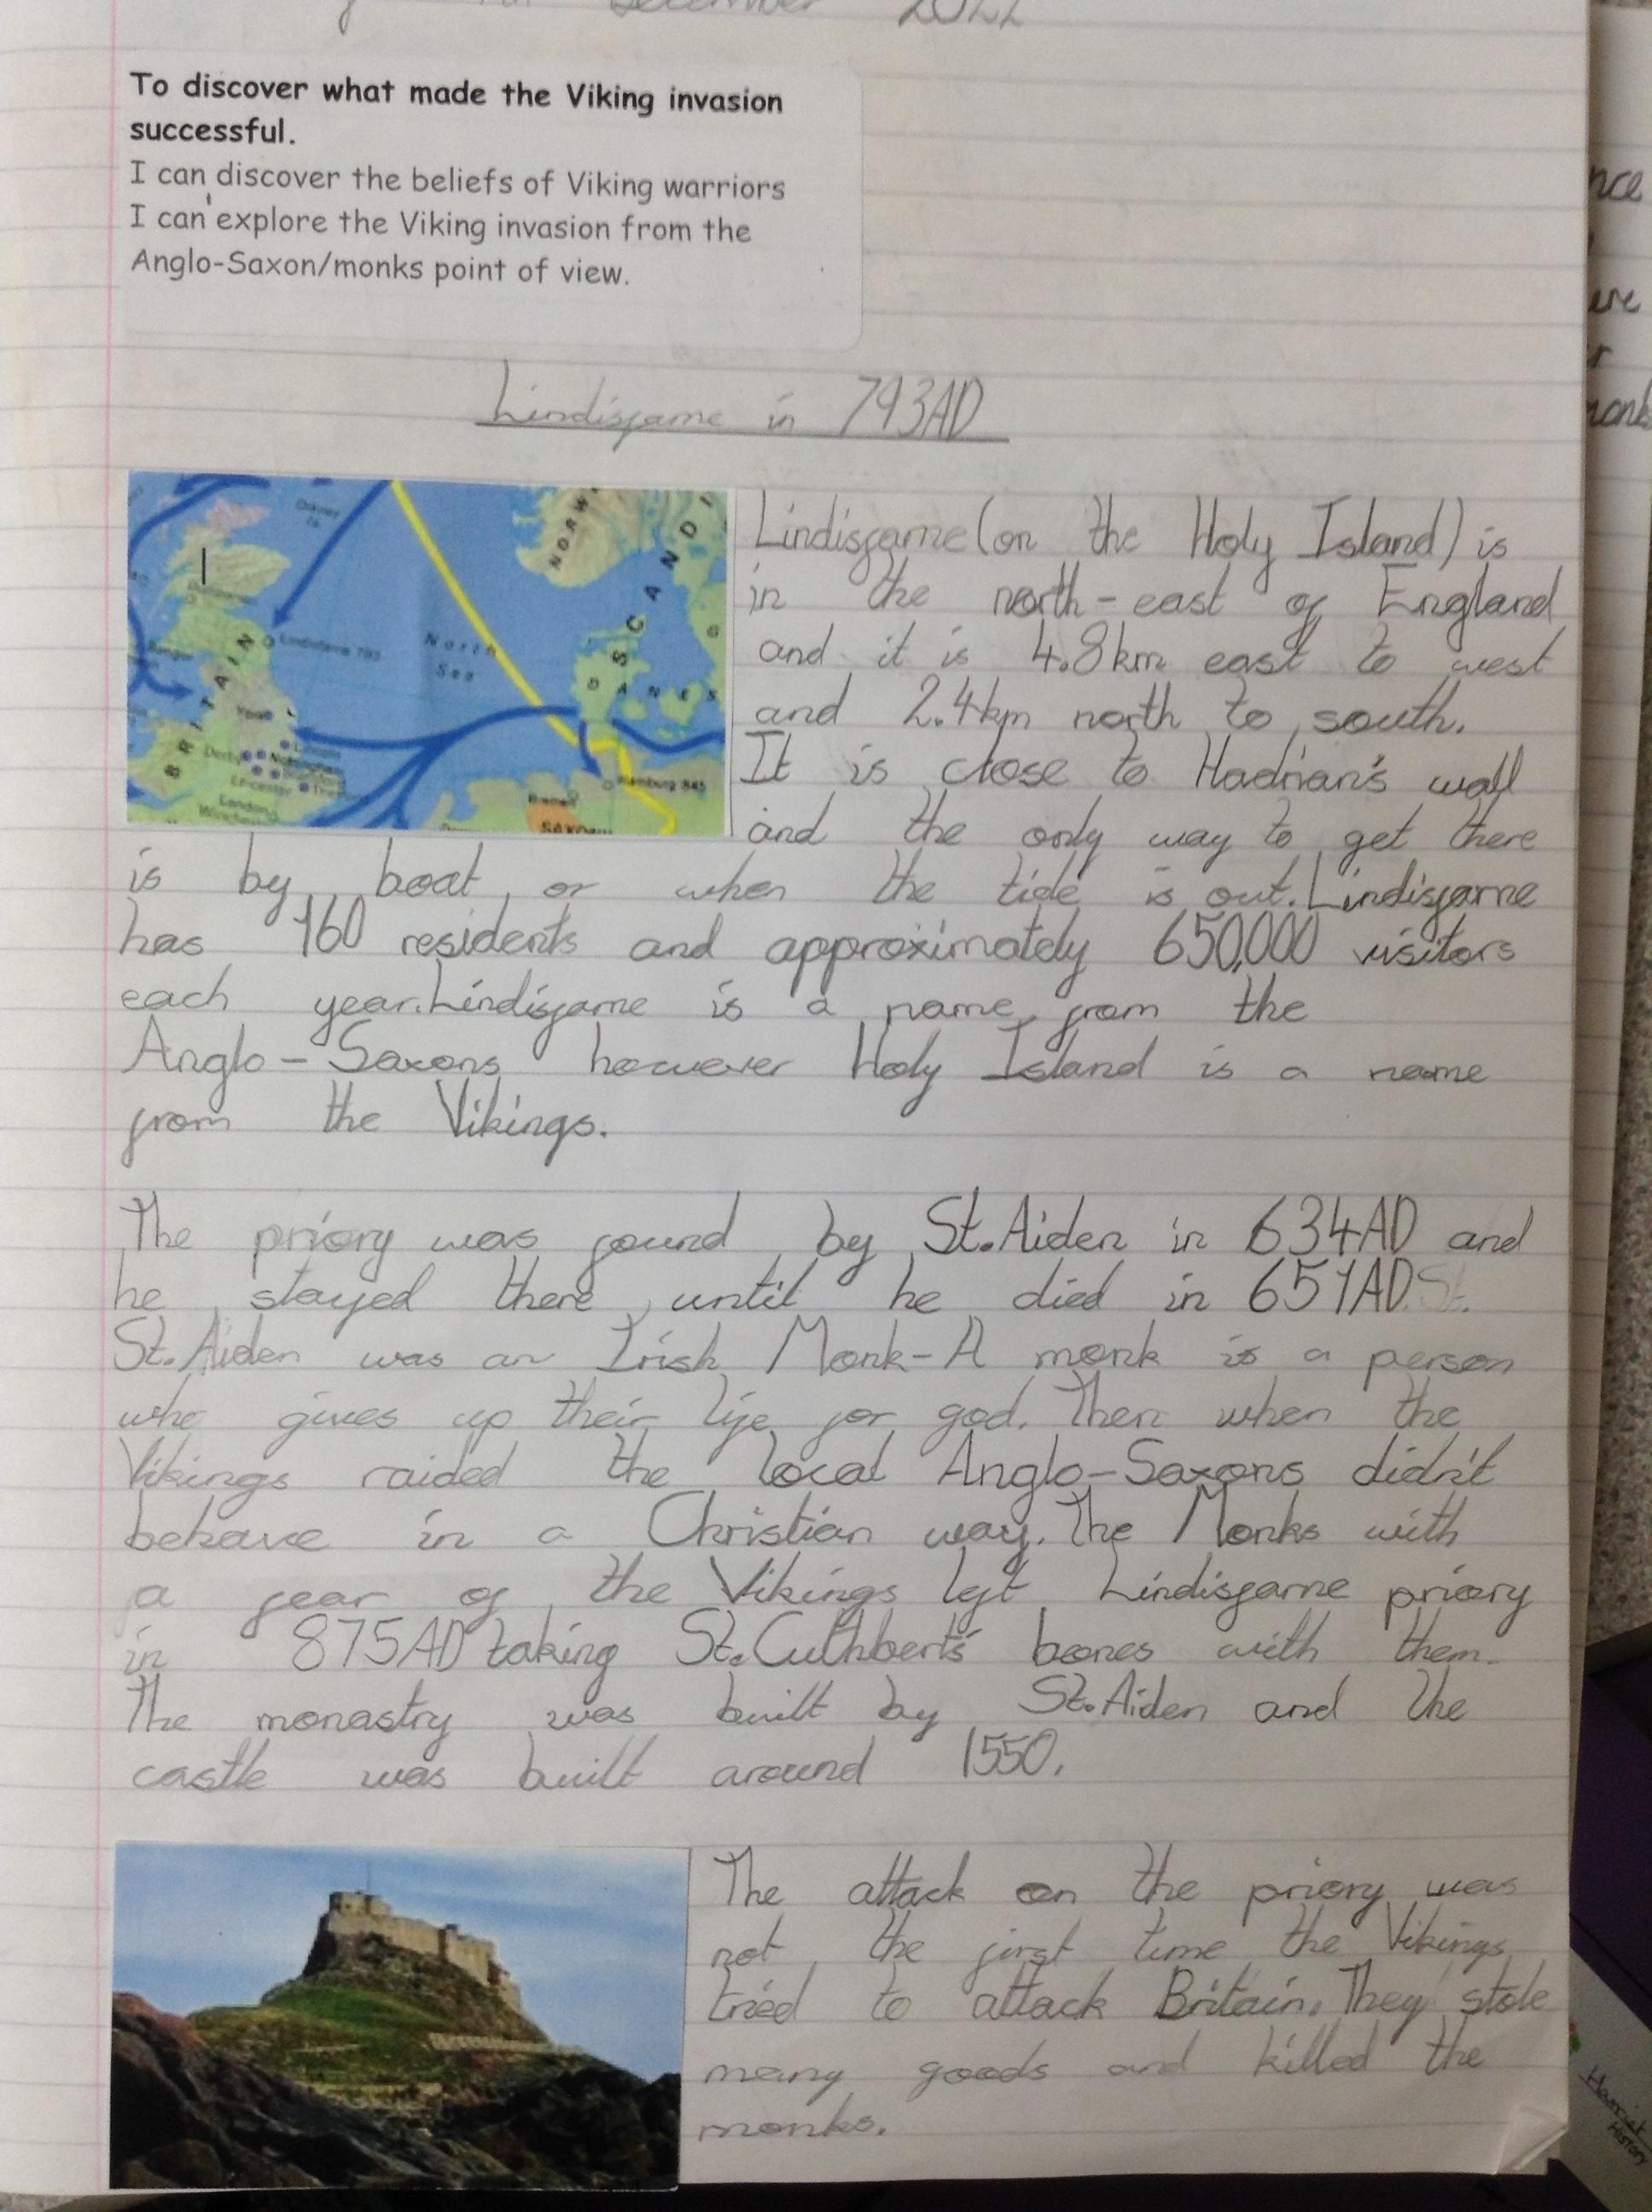 December 2022
To discover what made the Viking invasion
successful.
I can discover the beliefs of Viking warriors
I can explore the Viking invasion from the
Anglo-Saxon/monks point of view.
Lindisfarne in 793AD
NORW
SCANDI
Lindisfarne 793
North
Sea
BRITAIN
DANES
York
Lincoln
Derby
Leicester
London
Hamburg 845
Bremen
SAXON
Lindisfarne (on the Holy Island) is
in the north-east of England
and it is 4.8km east to west
and 2.4km north to south.
It is close to Hadrian's wall
and the only way to get there
is by boat or when the tide is out. Lindisfarne
has 160 residents and approximately 650,000 visitors
each year. Lindisfarne is a name from the
Anglo-Saxons however Holy Island is a name
from the Vikings.
The priory was found by St. Aiden in 634AD and
he stayed there until he died in 651AD. St.
St. Aiden was an Irish Monk-A monk is a person
who gives up their life for god. Then when the
Vikings raided the local Anglo-Saxons didn't
behave in a Christian way. The Monks with
a fear of the Vikings left Lindisfarne priory
in 875AD taking St. Cuthbert's bones with them.
The monastry was built by St. Aiden and the
castle was built around 1550.
The attack on the priory was
not the first time the Vikings
tried to attack Britain. They stole
many goods and killed the
monks.
nce
r
monk
Harriet
History